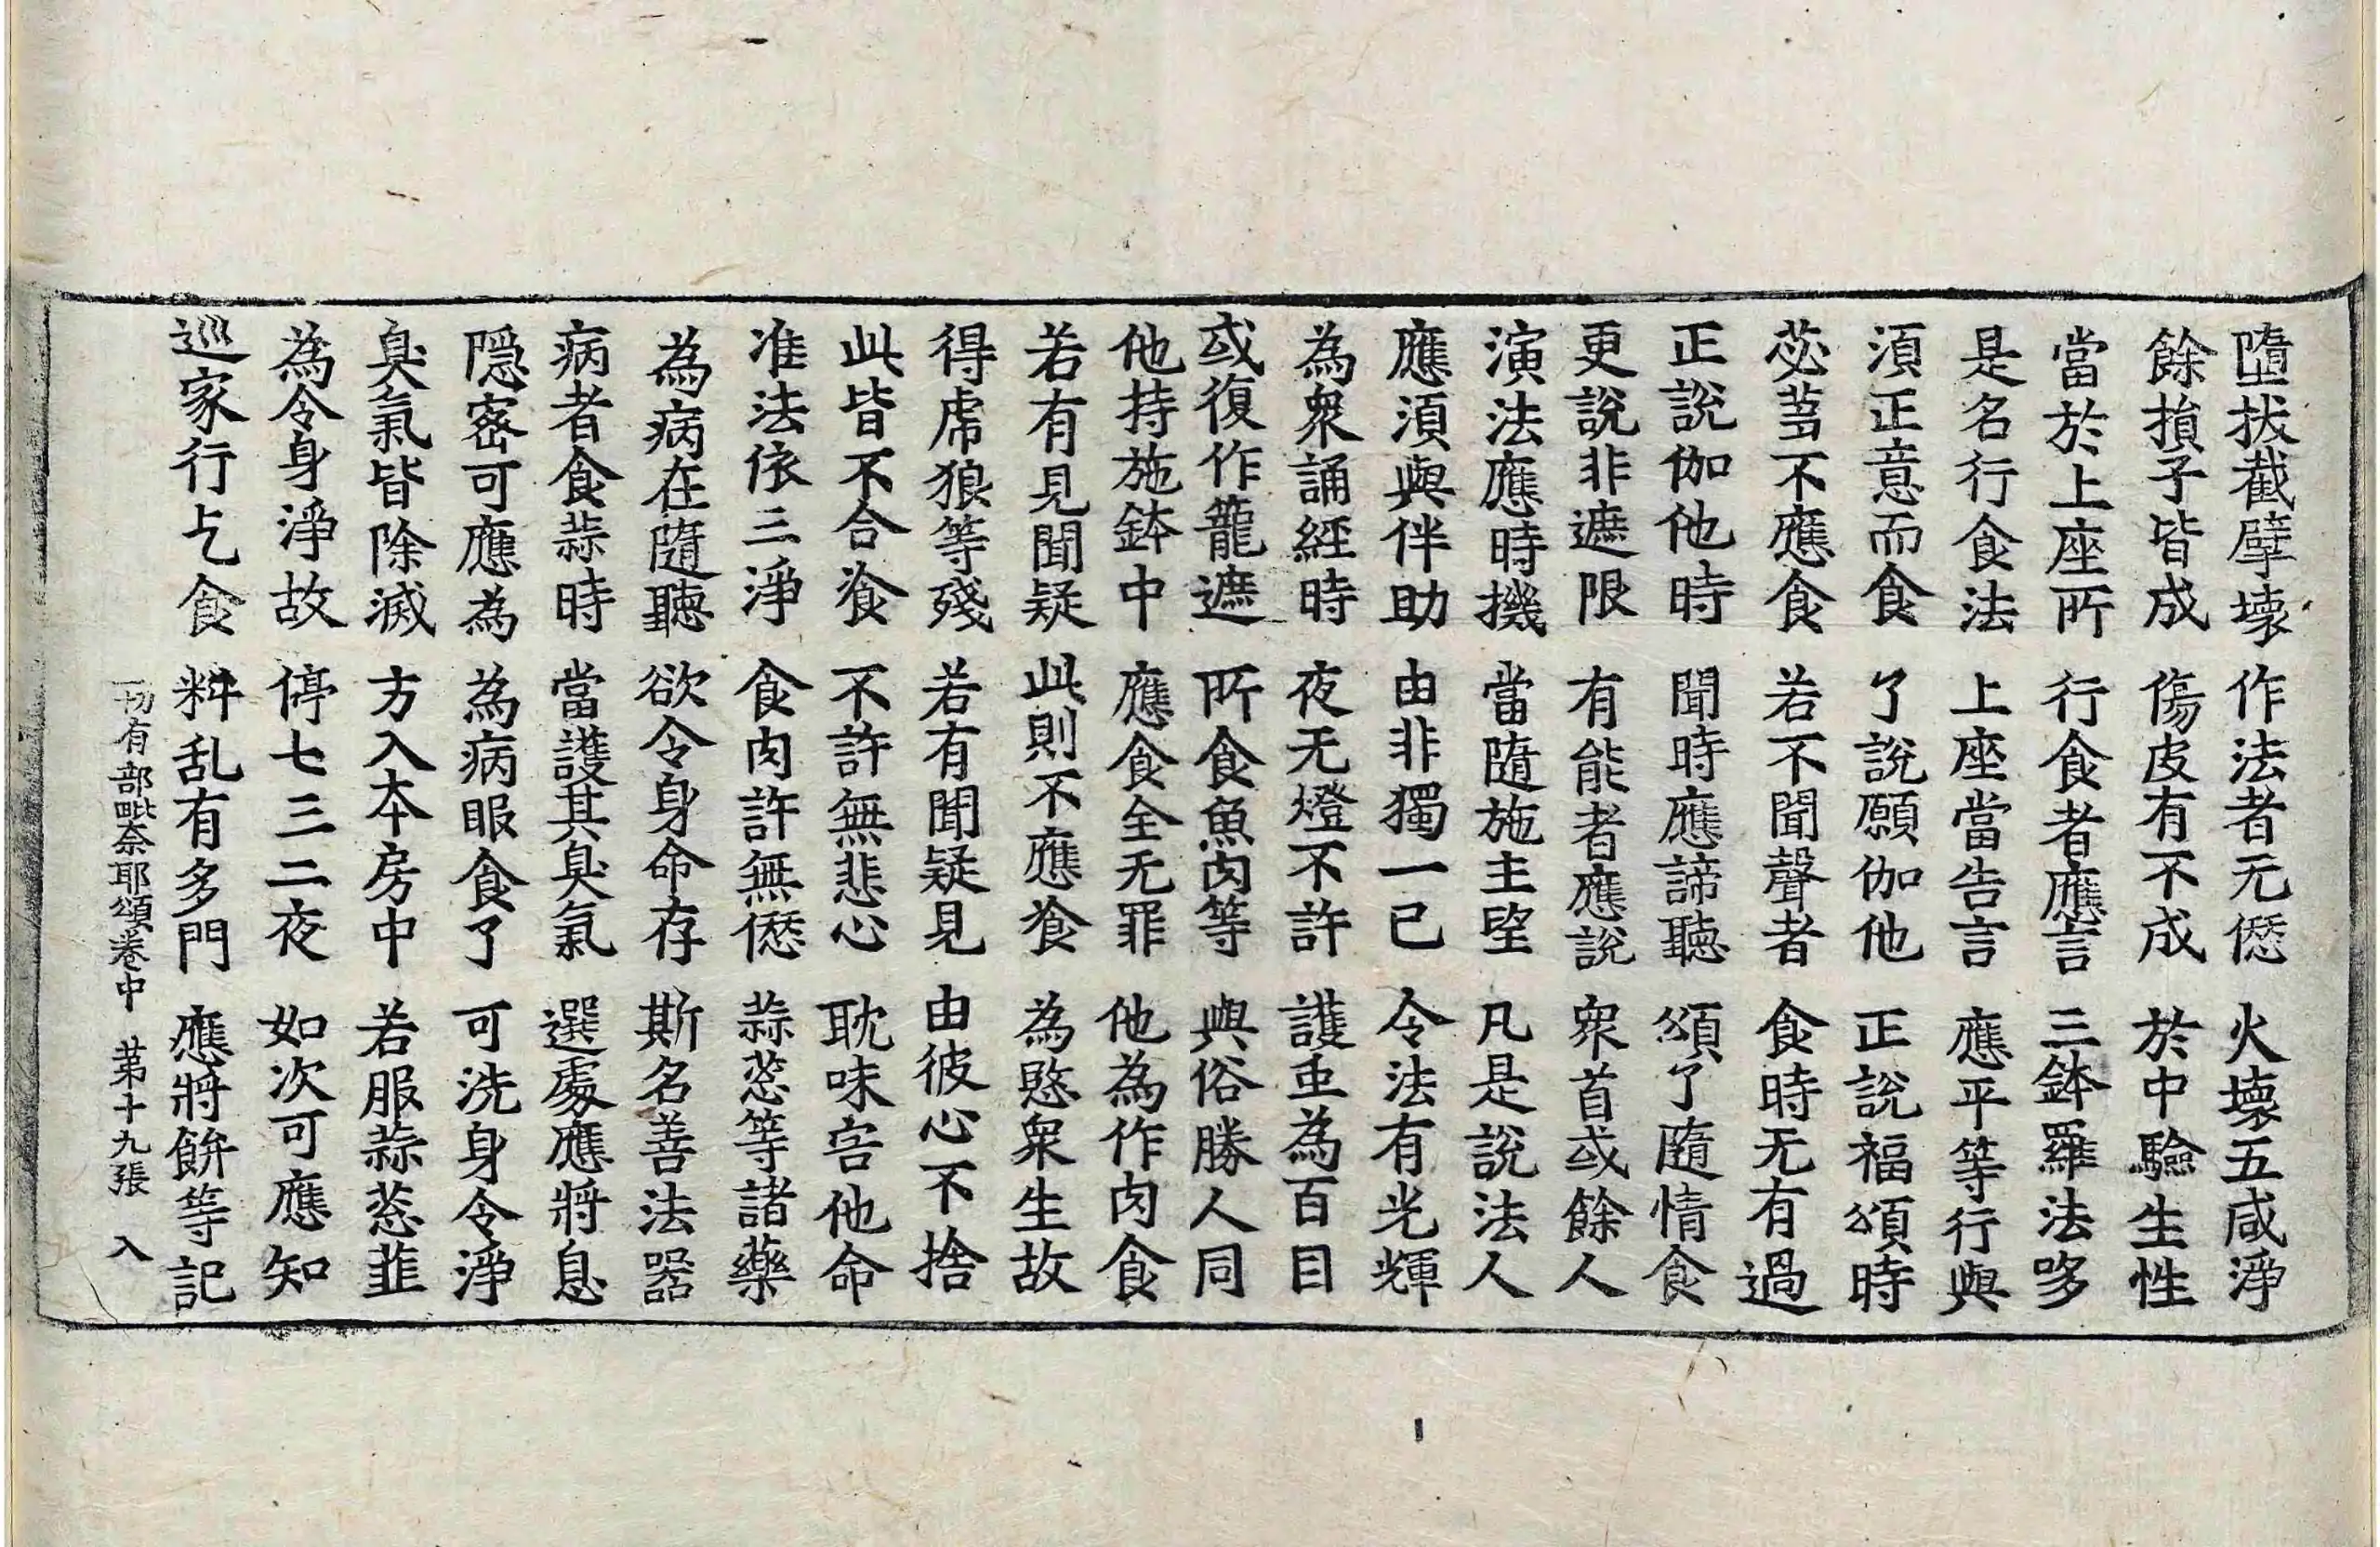 墮拔截擘壞 作法者无𠎝 火壞五咸淨
餘損子皆成 傷皮有不成 於中驗生性
當於上座所 行食者應言 三鉢羅法哆
是名行食法 上座當告言 應平等行與
湏正意而食 了說願伽他 正說福頌時
苾芻不應食 若不聞聲者 食時无有過
正說伽他時 聞時應諦聽 頌了隨情食
更說非遮限 有能者應說 衆首或餘人
演法應時機 當隨施主望 凡是說法人
應湏與伴助 由非獨一己 令法有光輝
為衆誦經時 夜无燈不許 護䖝為百目
或復作籠遮 所食魚肉等 與俗勝人同
他持施鉢中 應食全无罪 他為作肉食
若有見聞疑 此則不應飡 為愍衆生故
得虎狼等殘 若有聞疑見 由彼心不捨
此皆不合飡 不許無悲心 耽味害他命
准法依三淨 食肉許無𠎝 蒜葱等諸藥
為病在隨聽 欲令身命存 斯名善法器
病者食蒜時 當護其臭氣 選處應將息
隱密可應為 為病服食了 可洗身令淨
臭氣皆除滅 方入本房中 若服蒜葱韮
為令身淨故 停七三二夜 如次可應知
巡家行乞食 䉼乱有多門 應將餅等記
一切有部毗奈耶頌卷中 苐十九張 入